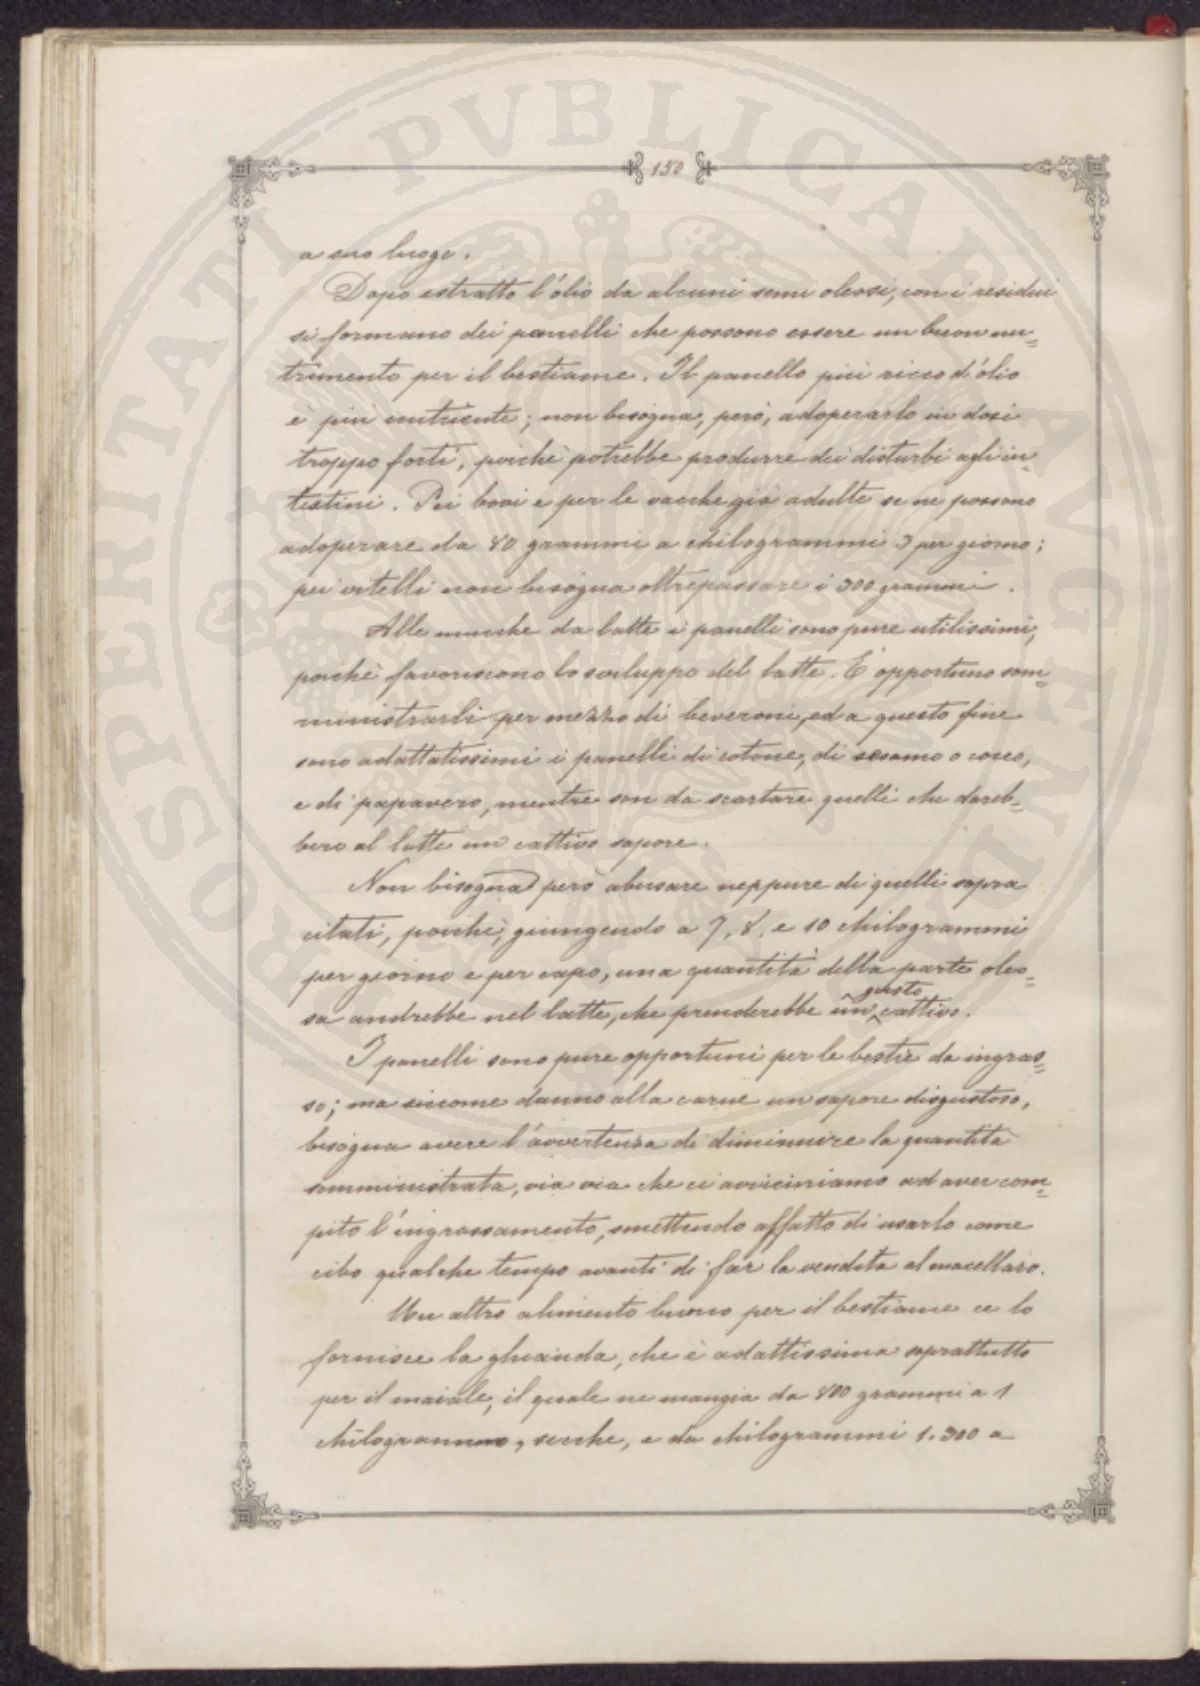 PROSPERITATI PVBLICAE AVGENDAE
150
a suo luogo.
Dopo estratto l'olio da alcuni semi oleosi, con i residui
si formano dei panelli che possono essere un buon nu=
trimento per il bestiame. Il panello più ricco d'olio
è più nutriente; non bisogna, però, adoperarlo in dosi
troppo forti, poichè potrebbe produrre dei disturbi agli in=
testini. Pei bovi e per le vacche già adulte se ne possono
adoperare da 80 grammi a chilogrammi 3 per giorno;
pei vitelli non bisogna oltrepassare i 300 grammi.
Alle mucche da latte i panelli sono pure utilissimi,
poichè favoriscono lo sviluppo del latte. È opportuno som=
ministrarli per mezzo di beveroni, ed a questo fine
sono adattatissimi i panelli di cotone, di sesamo o cocco,
e di papavero, mentre son da scartare quelli che dareb=
bero al latte un cattivo sapore.
Non bisogna però abusare neppure di quelli sopra
citati, poichè, giungendo a 7, 8, e 10 chilogrammi
per giorno e per capo, una quantità della parte oleo=
sa andrebbe nel latte, che prenderebbe un gusto cattivo.
I panelli sono pure opportuni per le bestie da ingras=
so; ma siccome danno alla carne un sapore disgustoso,
bisogna avere l'avvertenza di diminuire la quantità
somministrata, via via che ci avviciniamo ad aver com=
pito l'ingrassamento, smettendo affatto di usarlo come
cibo qualche tempo avanti di far la vendita al macellaro.
Un altro alimento buono per il bestiame ce lo
fornisce la ghianda, che è adattissima soprattutto
per il maiale, il quale ne mangia da 800 grammi a 1
chilogrammo, secche, e da chilogrammi 1.300 a